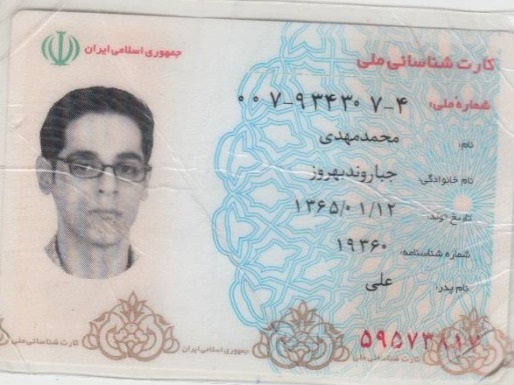 جمهوری اسلامی ایران
کارت شناسائی ملی
شمارهٔ ملی: ۰۰۷-۹۳۴۳۰۷-۴
نام: محمدمهدی
نام خانوادگی: جباروندبهروز
تاریخ تولد: ۱۳۶۵/۰۱/۱۲
شماره شناسنامه: ۱۹۳۶۰
نام پدر: علی
۵۹۵۷۳۸۱۷
کارت شناسائی ملی
جمهوری اسلامی ایران
کارت شناسائی ملی